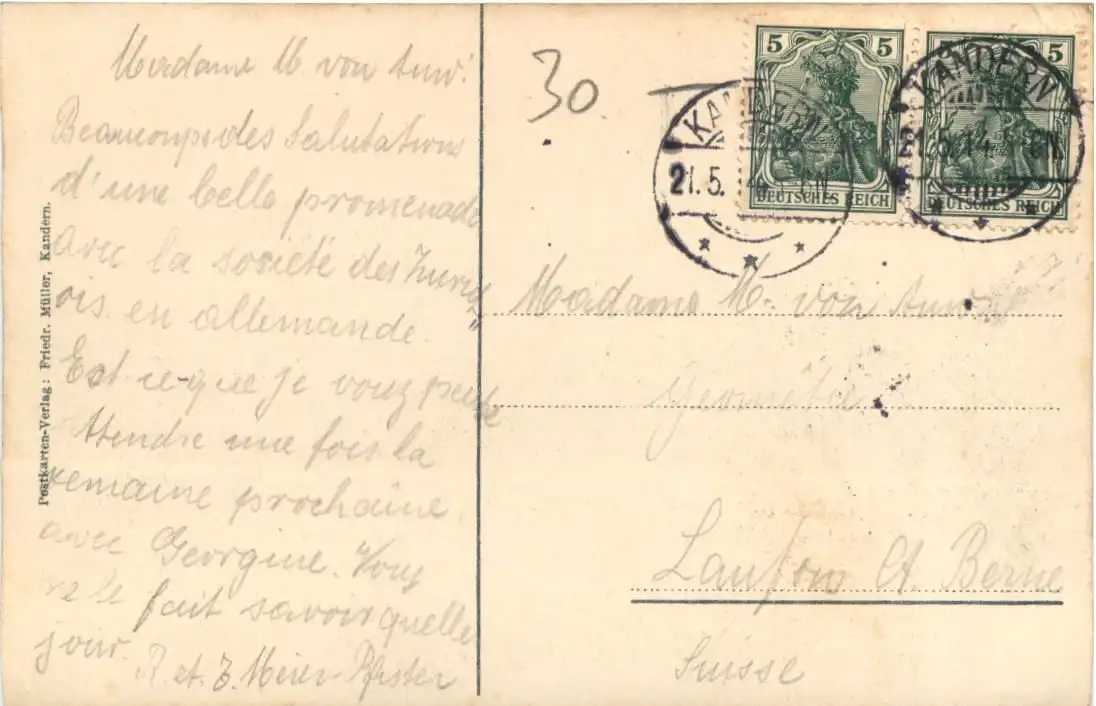 Madame M. von Auw.
Beaucoupsdes Salutations
d'une belle promenade
avec la société des Zurich
ois en allemande.
Est ce que je vouz peut
Attendre une fois la
semaine prochaine
avec Georgine. Vous
le fait savoir quelle
jour. R. et. J. Meier-Pfister
Postkarten-Verlag: Friedr. Müller, Kandern.
30.
5 5
DEUTSCHES REICH
5 5
DEUTSCHES REICH
KANDERN
21.5.
KANDERN
5.14
Madame M. von Auw.
Géomètre
Laufon Ct. Berne
Suisse